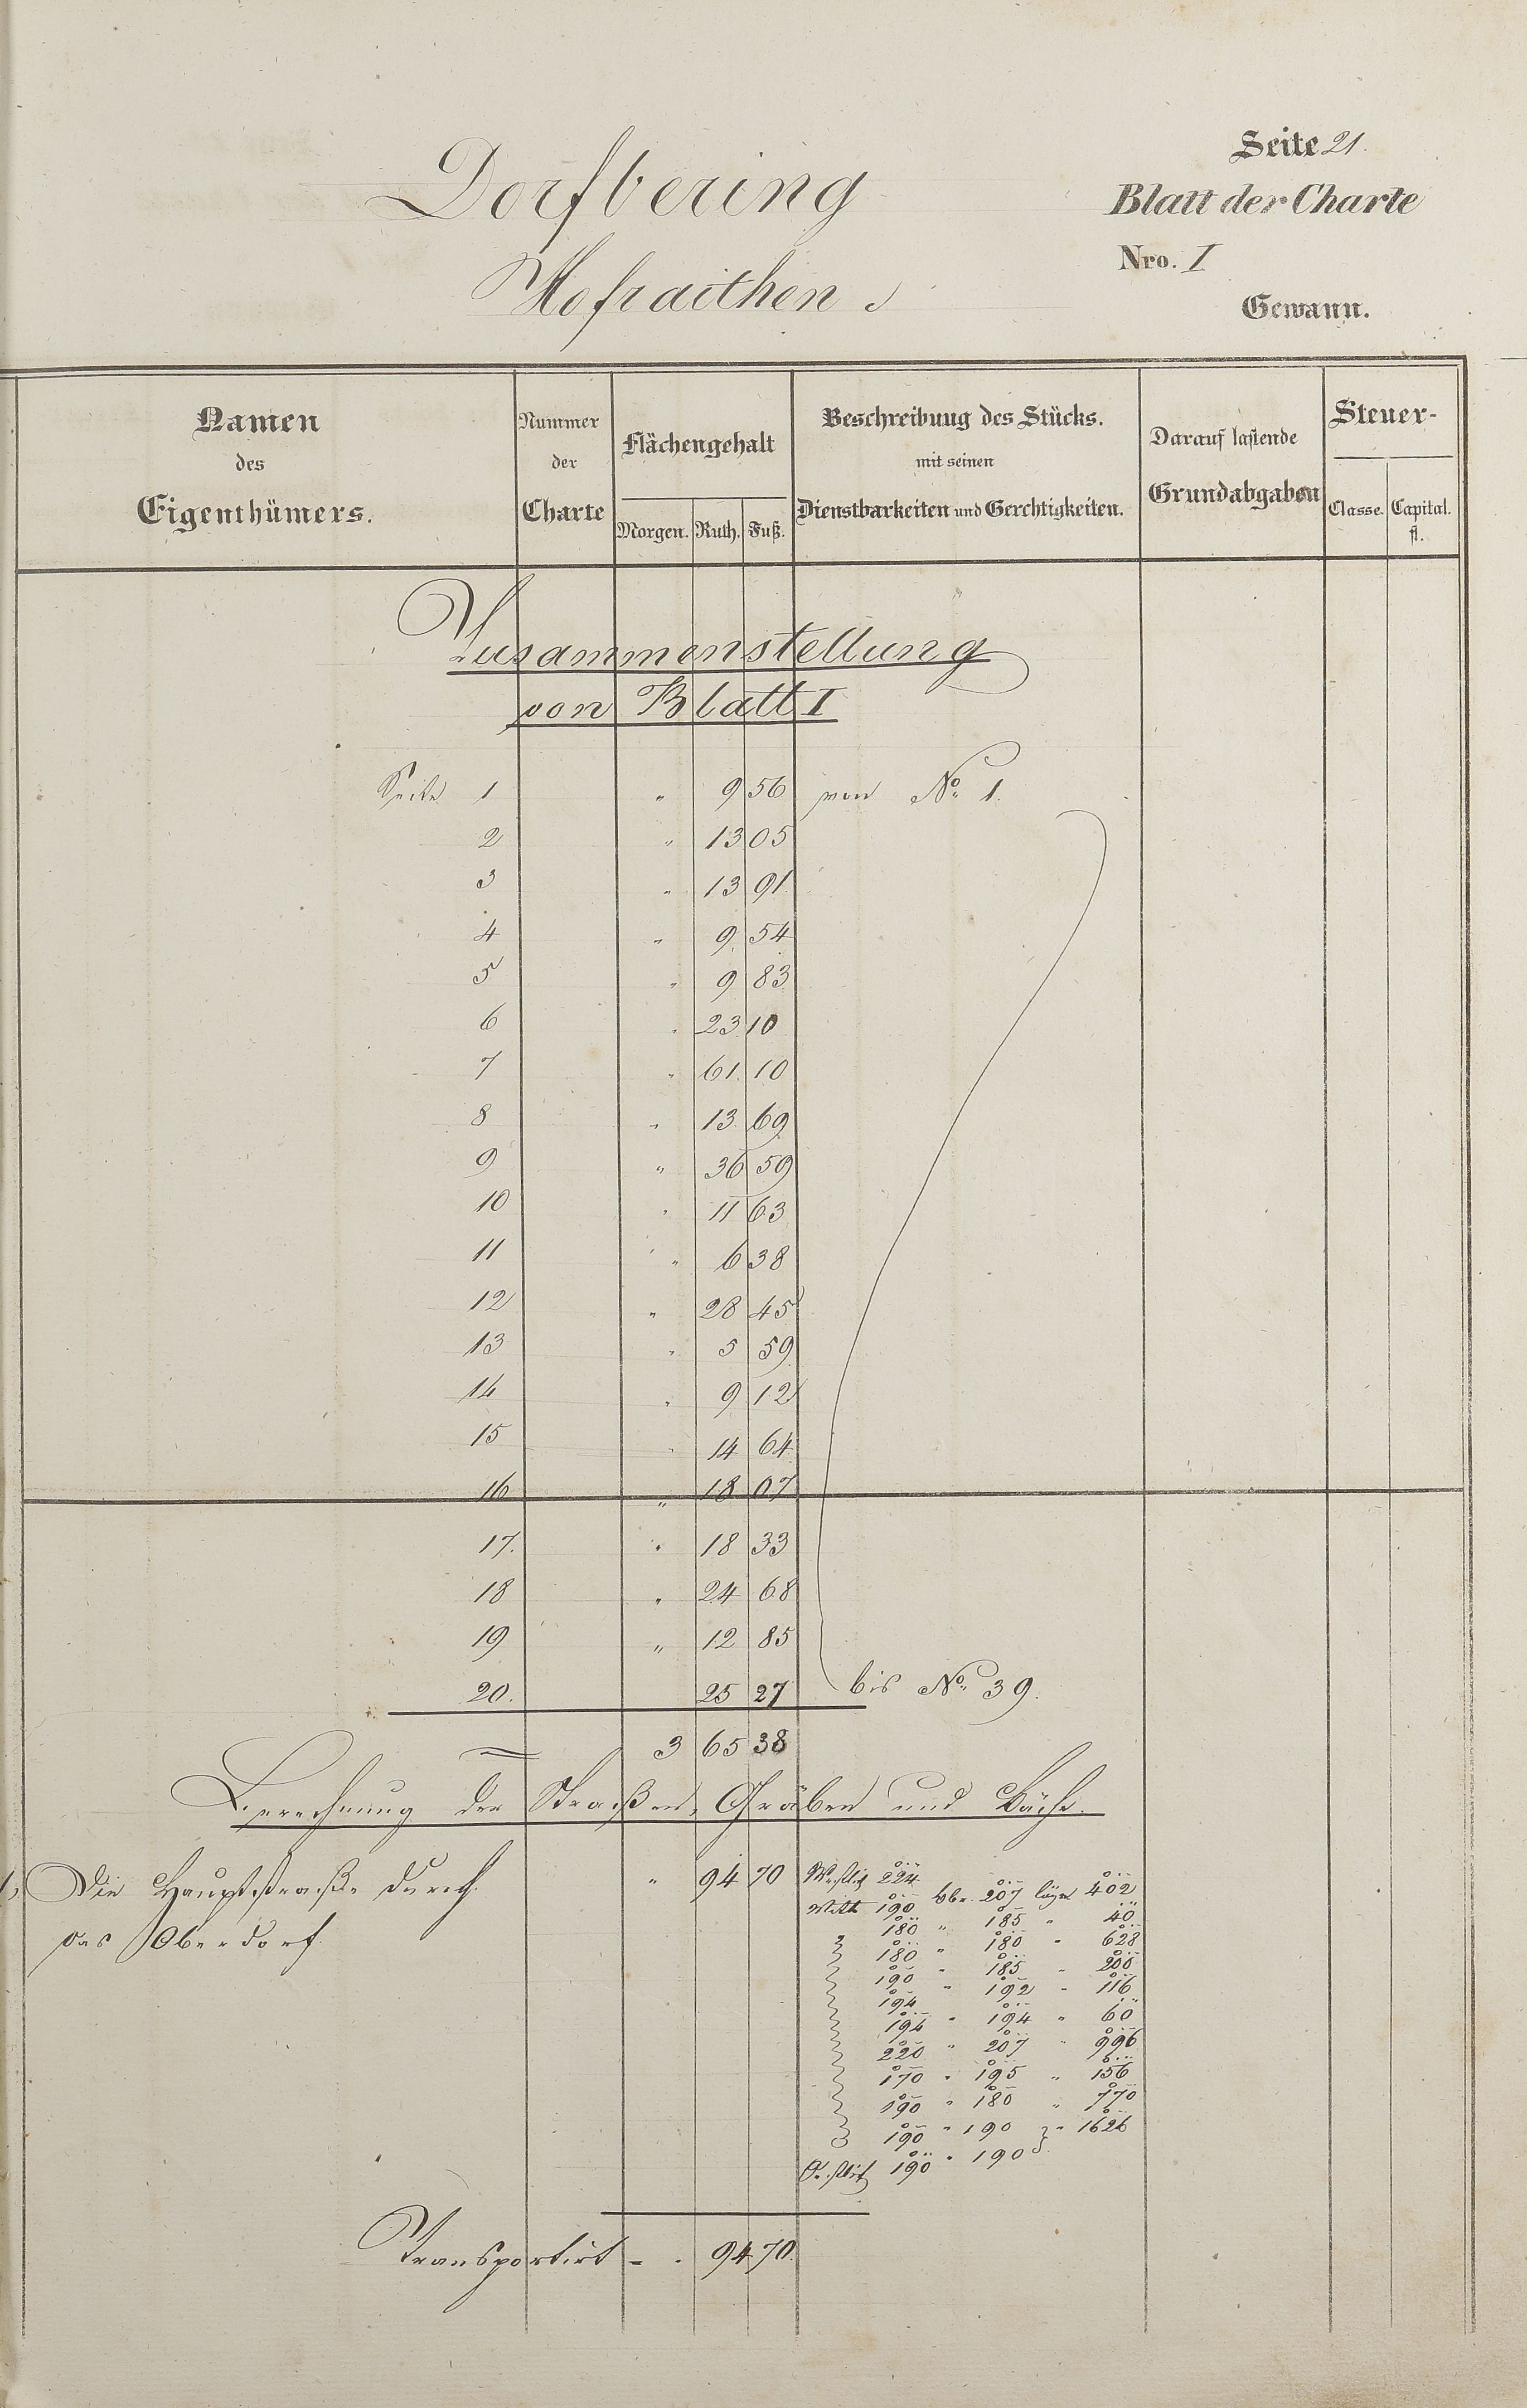 Seite 21.
Dorfbering
Blatt der Charte
Nro. I
Hofraithen
Gewann.
Namen des Eigenthümers.
Nummer der Charte
Flächengehalt
Morgen. Ruth. Fuß.
Beschreibung des Stücks.
mit seinen
Dienstbarkeiten und Gerchtigkeiten.
Darauf lastende
Grundabgaben
Steuer-
Classe. Capital.
fl.
Zusammenstellung
von Blatt I
Seite 1 " 9 56 von No. 1.
2 " 13 05
3 " 13 91
4 " 9 54
5 " 9 83
6 " 23 10
7 " 61 10
8 " 13 69
9 " 36 59
10 " 11 63
11 " 6 38
12 " 28 45
13 " 5 59
14 " 9 12
15 " 14 64
16 " 18 07
17. " 18 33
18 " 24 68
19 " 12 85
20. 25 27 bis No. 39.
3 65 38
Berechnung der Straßen, Gräben und Bäche.
1, Die Hauptstraße durch " 94 70
das Oberdorf.
Westlich 224
Mitte 190 Obr. 207 länge 402
180 " 185 " 40
180 " 180 " 628
190 " 185 " 200
194 " 192 " 116
194 " 194 " 60
220 " 207 " 996
170 " 195 " 156
190 " 180 " 770
190 " 190 " 1626
Östlich 190 " 190
Transportirt - . 94 70.